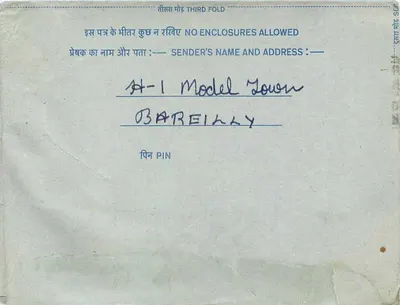 तीसरा मोड़ THIRD FOLD
इस पत्र के भीतर कुछ न रखिए NO ENCLOSURES ALLOWED
प्रेषक का नाम और पता :— SENDER'S NAME AND ADDRESS :—
H-1 Model Town
BAREILLY
पिन PIN
दूसरा मोड़